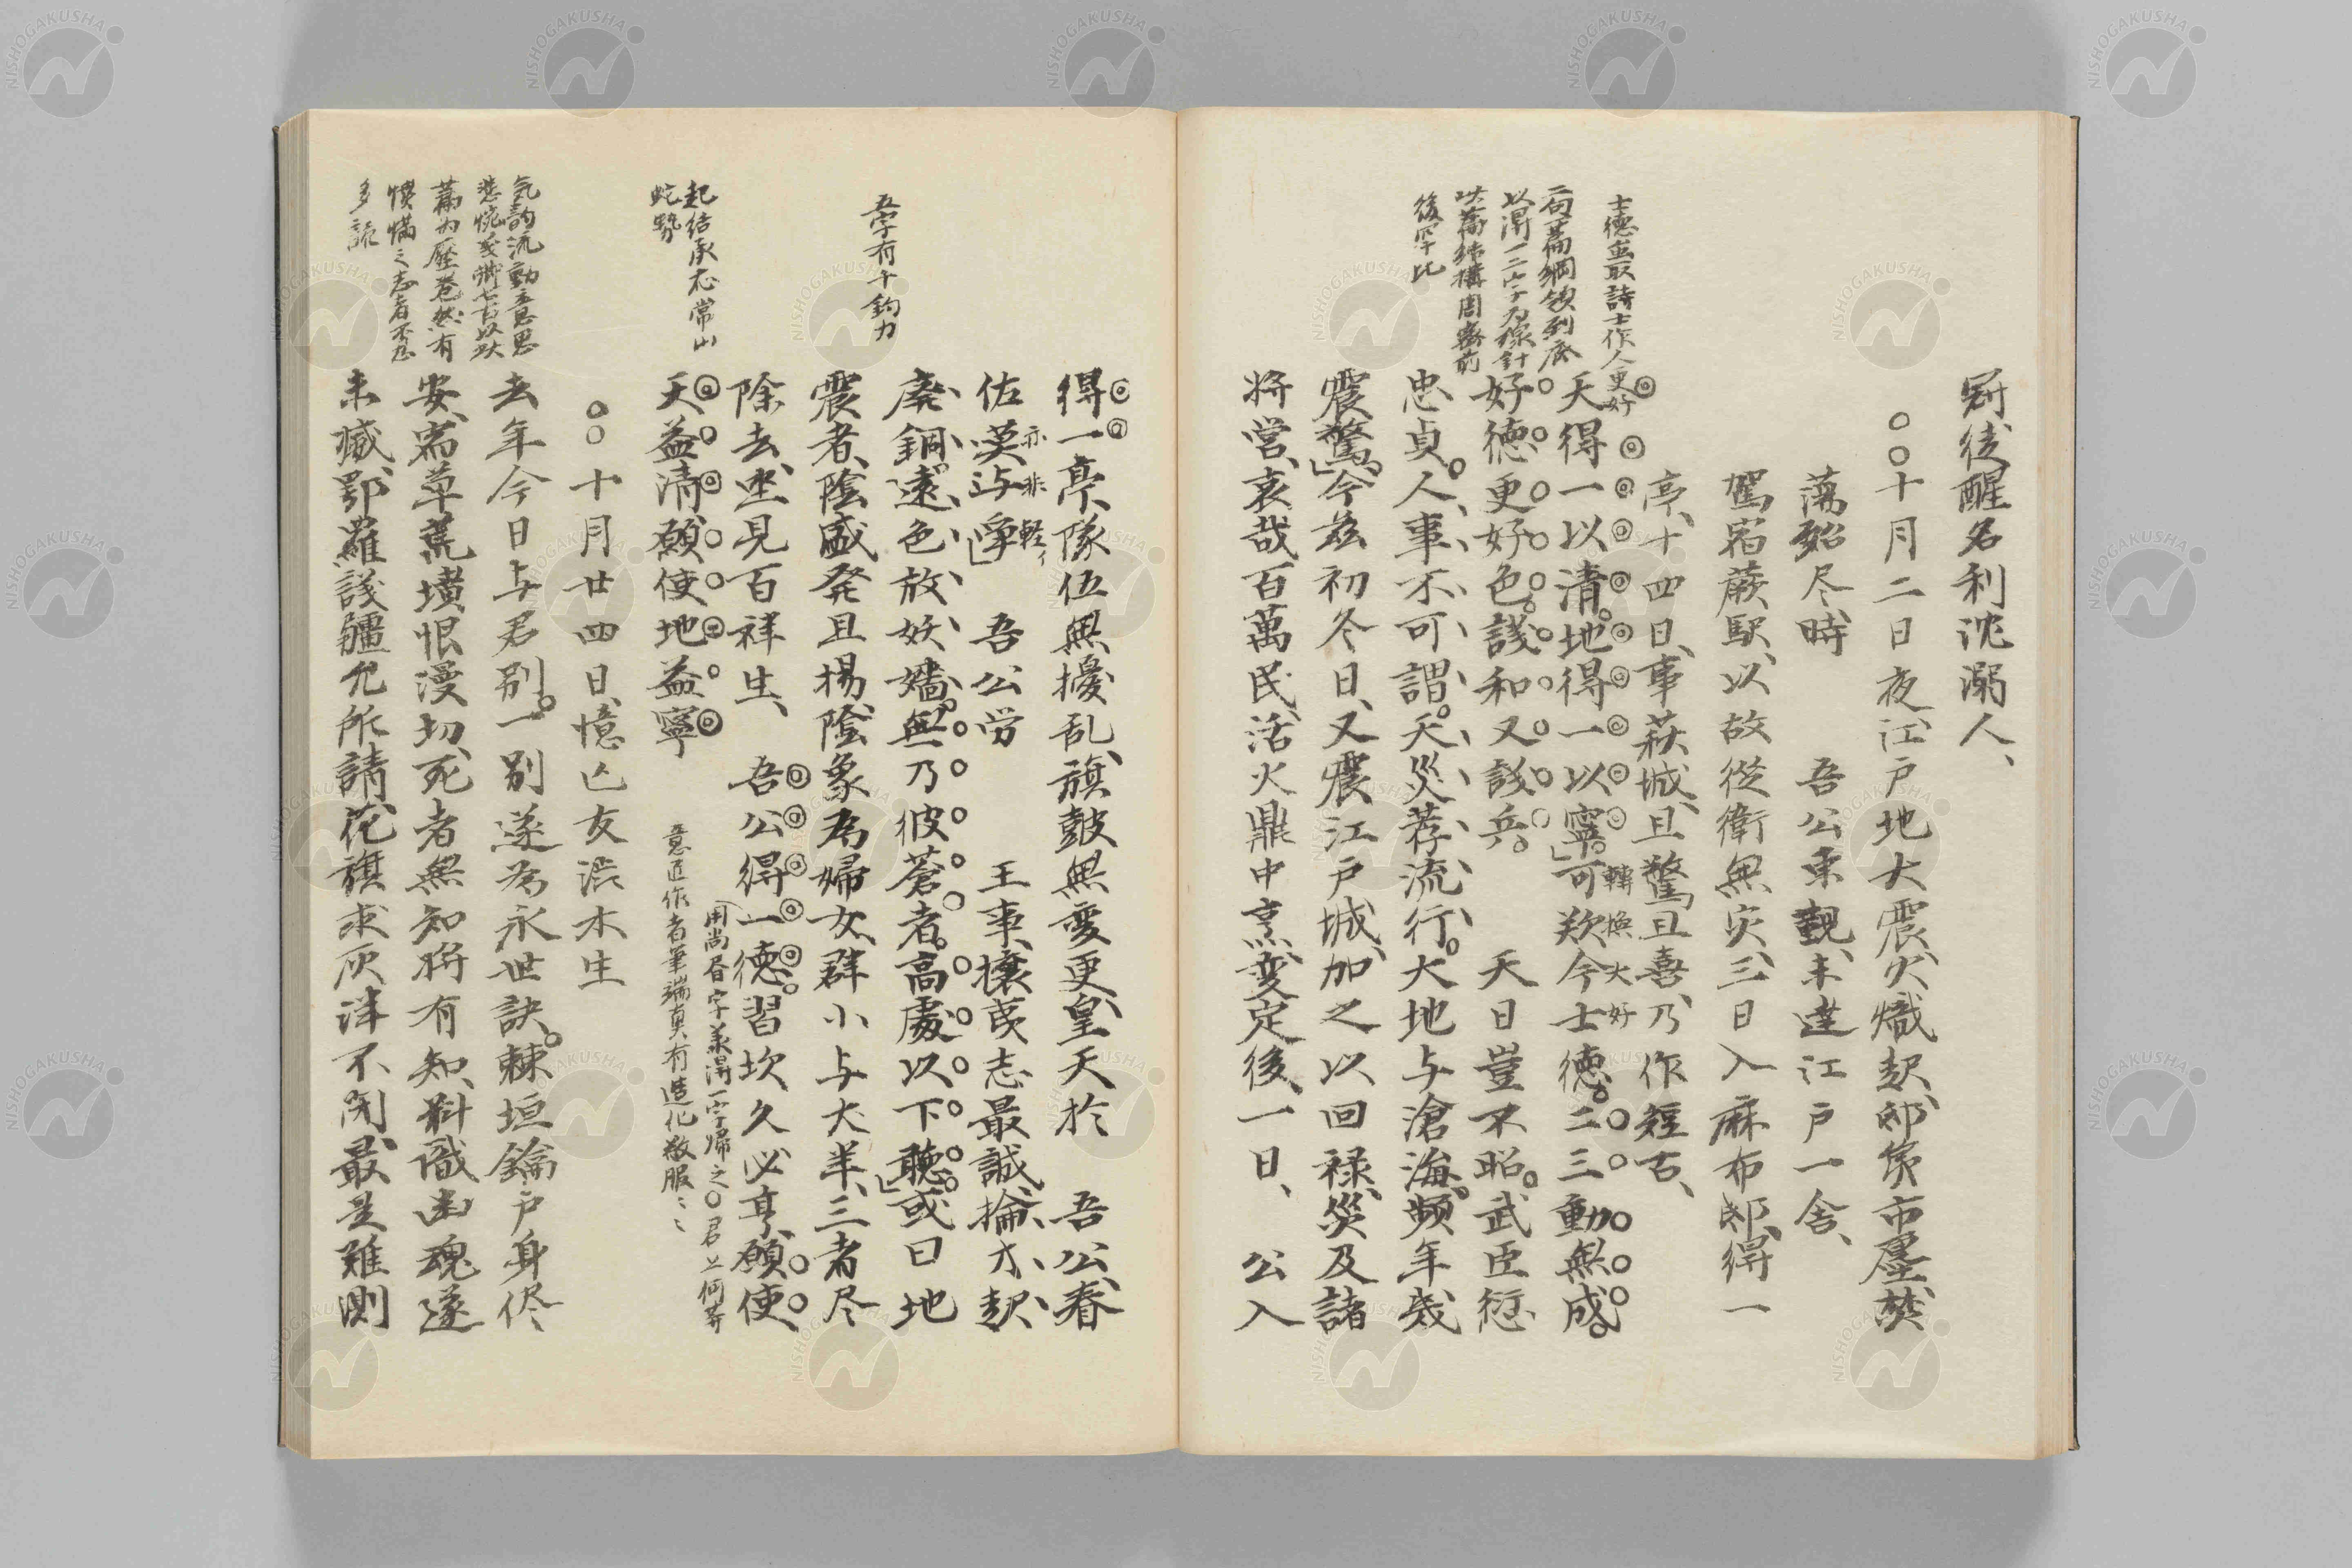 後醒名利沈溺人、
○○十月二日夜、江戸地大震、火熾起、邸家市廛、焚
蕩殆尽、時 吾公東覲、未達江戸一舎、
駕宿蕨駅、以故従衛無災、三日入麻布邸、得一
亭、十四日、事萩城、且驚且喜、乃作短古、
士徳並取詩士作人更好
二句一篇綱領到底
以得一二字為線針
此篇結構周密前
後罕比
天得一以清。地得一以寧。」可歎今士徳。二三動無成。
転換大好
好徳更好色。議和又議兵。 天日豈不昭。武臣愆
忠貞。人事不可謂。天災荐流行。大地与滄海。頻年幾
震驚。」今茲初冬日、又震江戸城、加之以回禄、災及諸
将営、哀哉百萬民、活火鼎中烹、変定後、一日、 公入
得一亭、隊伍無擾乱、旗鼓無変更、皇天於 吾公、眷
佑莫与争」 吾公労 王事、攘夷志最誠、掄才起
亦非軽々
五字有千鈞力
廃錮、遠色放妖嬙。無乃彼蒼者。高處以下聴。」或曰地
震者、陰盛発且揚、陰象為婦女、群小与犬羊、三者尽
除去、坐見百祥生、 吾公得一徳。習坎久必亨、願使、
起結承応常山
蛇勢
天益清、願使地益寧
意匠作者筆端真有造化敬服ミミ
○○十月廿四日、憶亡友渋木生
気韵流動意思
篇為圧巻然有
憤慨之志者不忍
多読
去年今日与君別。一別遂為永世訣。棘垣鑰戸身
安、宿草荒墳恨漫切、死者無知将有知、料識幽魂遂
未臧、鄂羅議疆允所請、花旗求灰洋不閉、最是難測